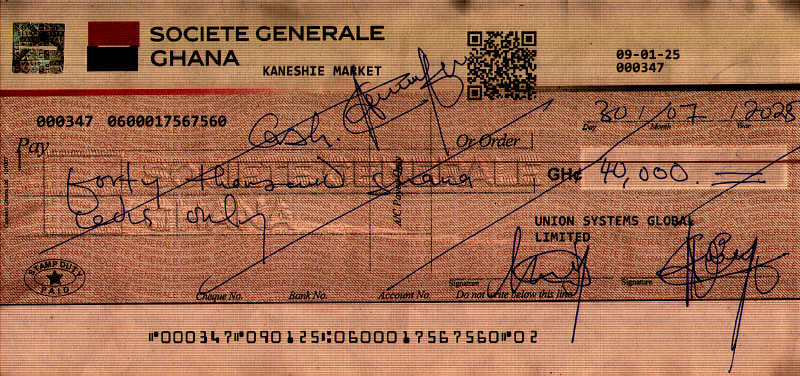 SOCIETE GENERALE
GHANA
KANESHIE MARKET
09-01-25
000347
30 / 07 / 2025
Day Month Year
000347 0600017567560
Cash.
Or Order
Pay
SOCIETE GENERALE
GHANA
forty thousand Ghana
cedis only
GH¢ 40,000.
A/C Payee Only
UNION SYSTEMS GLOBAL
LIMITED
STAMP DUTY
PAID
Signature
Signature
Cheque No. Bank No. Account No. Do not write below this line
⑈000347⑈090125⑆0600017567560⑈02